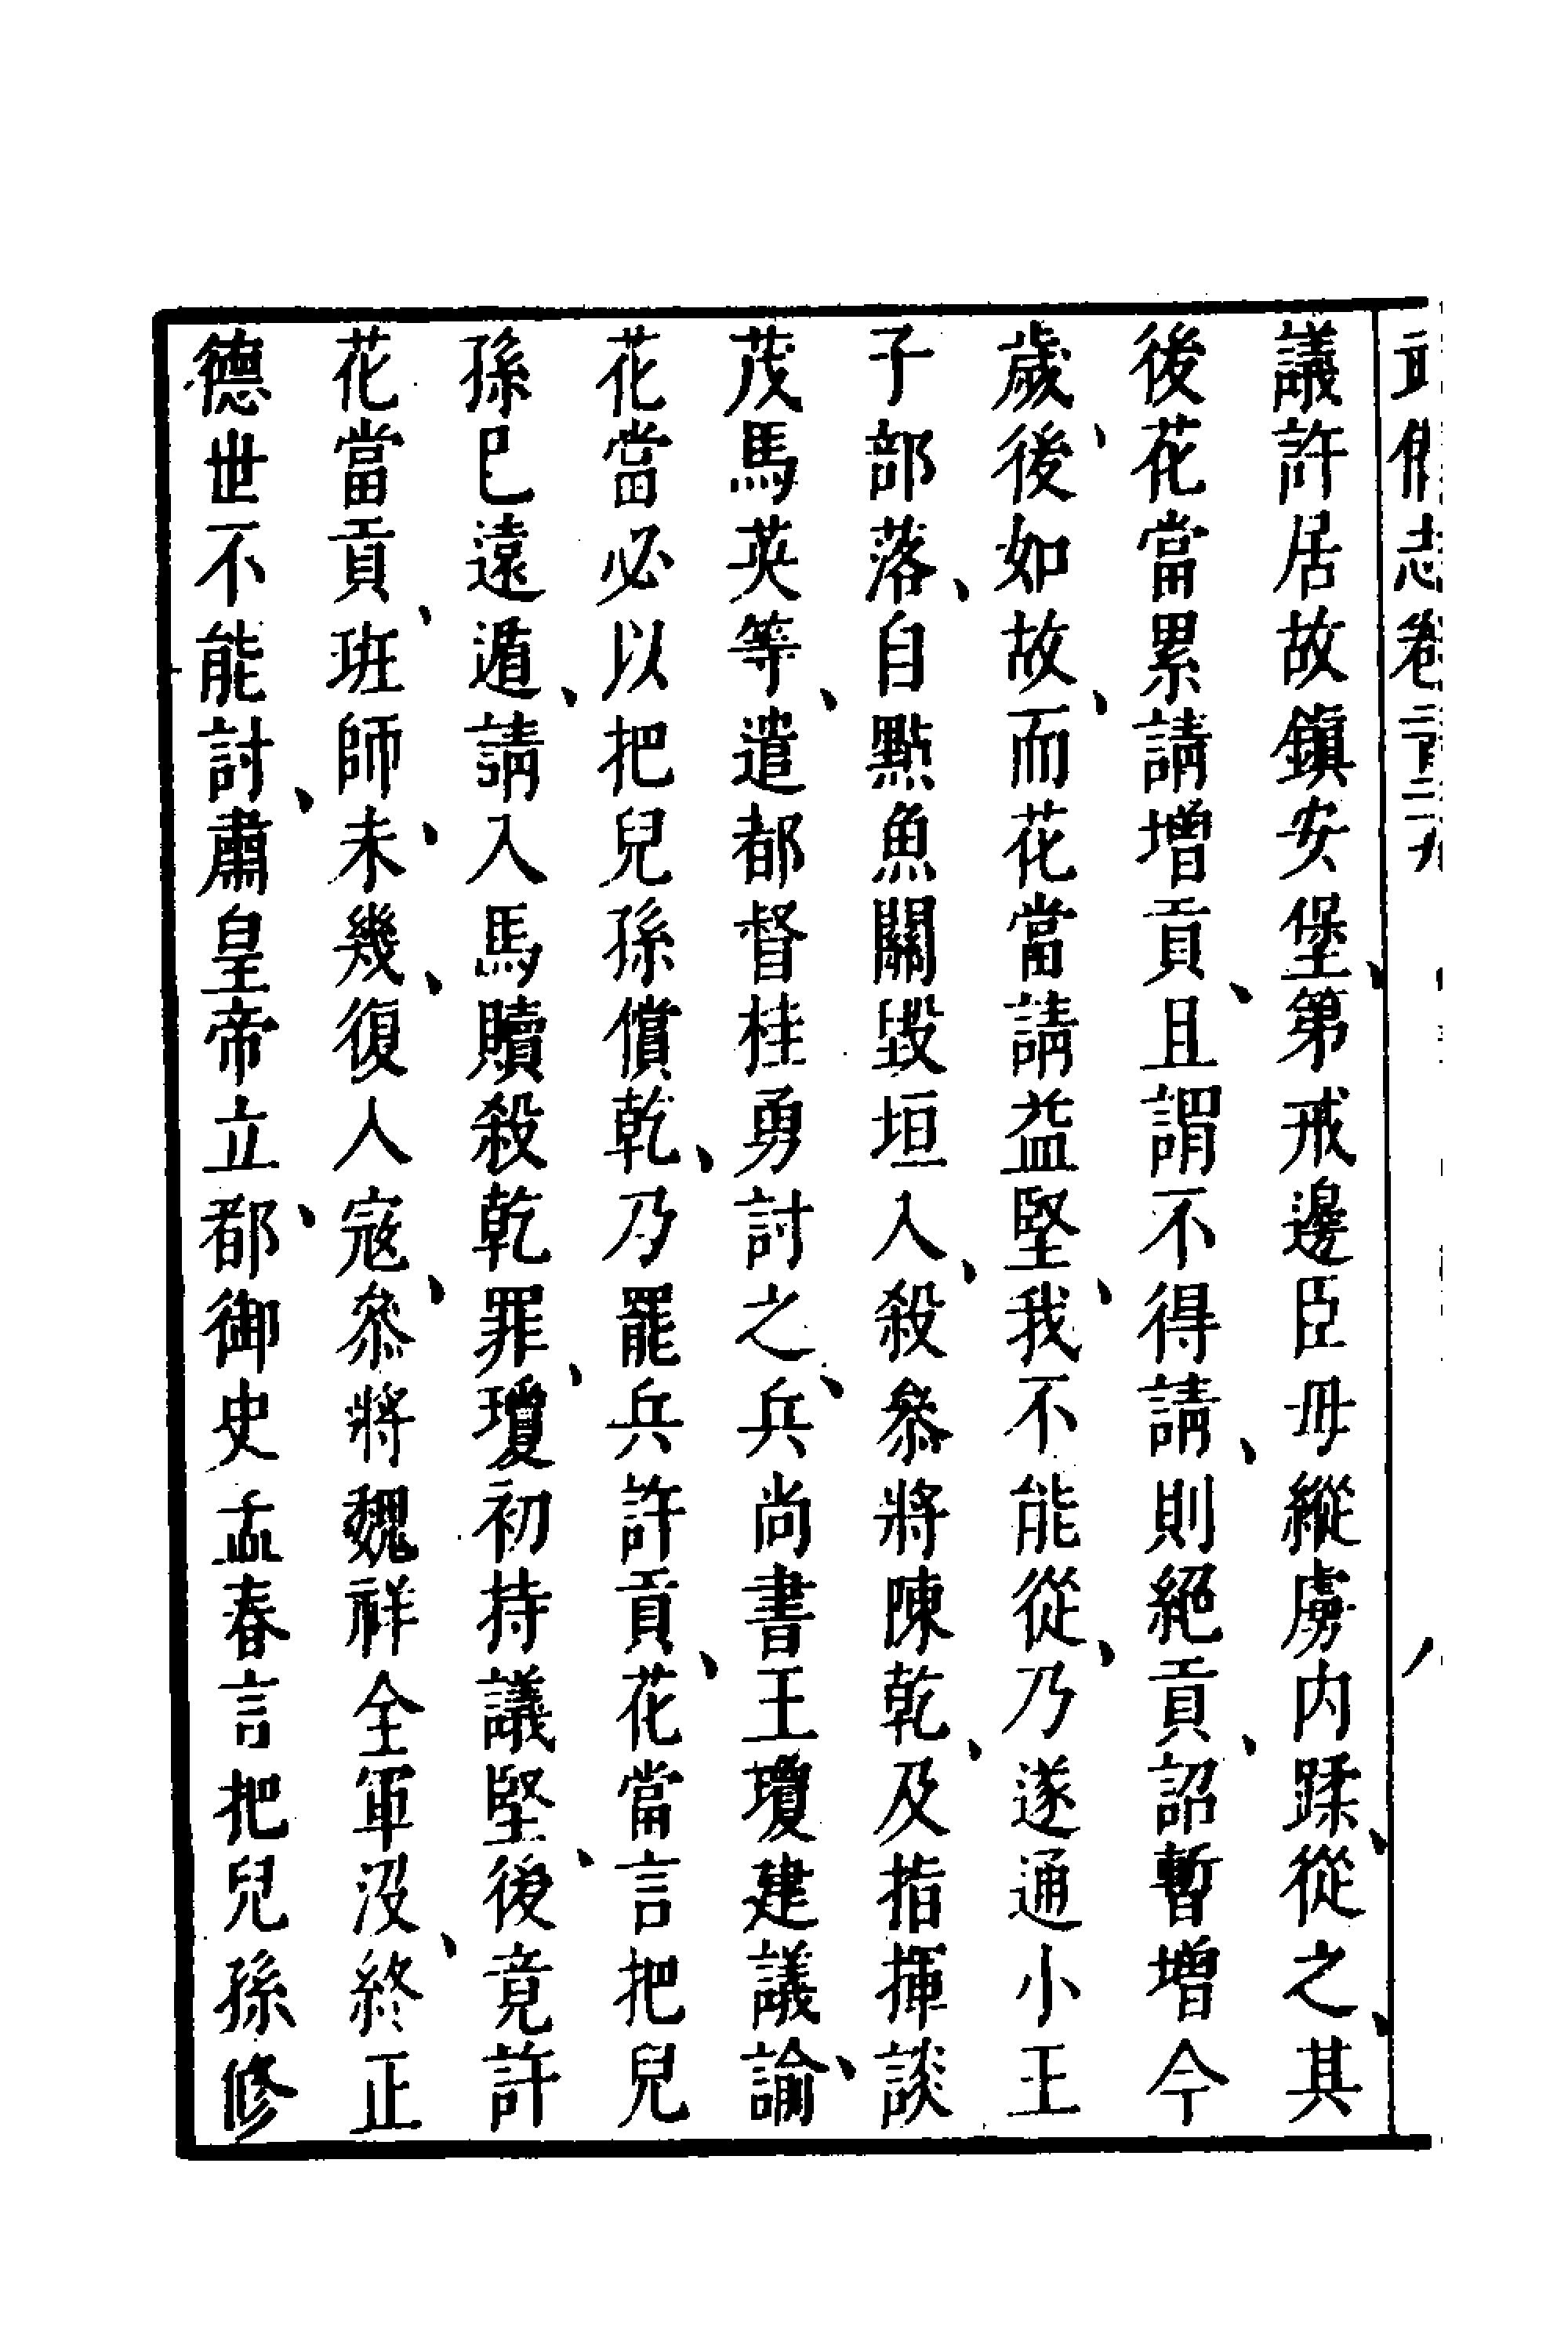 志卷二百二十九
議許居故鎮安堡、第戒邊臣毋縱虜内蹂、從之、其
後花當累請增貢、且謂不得請、則絕貢、詔暫增今
歲、後如故、而花當請益堅、我不能從、乃遂通小王
子部落、自㸃魚關毀垣入、殺叅將陳乾、及指揮談
茂馬英等、遣都督桂勇討之、兵尚書王瓊建議諭、
花當必以把兒孫償乾、乃罷兵許貢、花當言把兒
孫已遠遁、請入馬贖殺乾罪、瓊初持議堅、後竟許
花當貢、班師、未幾、復入寇、叅將魏祥全軍沒、終正
德世不能討、肅皇帝立、都御史孟春言把兒孫修